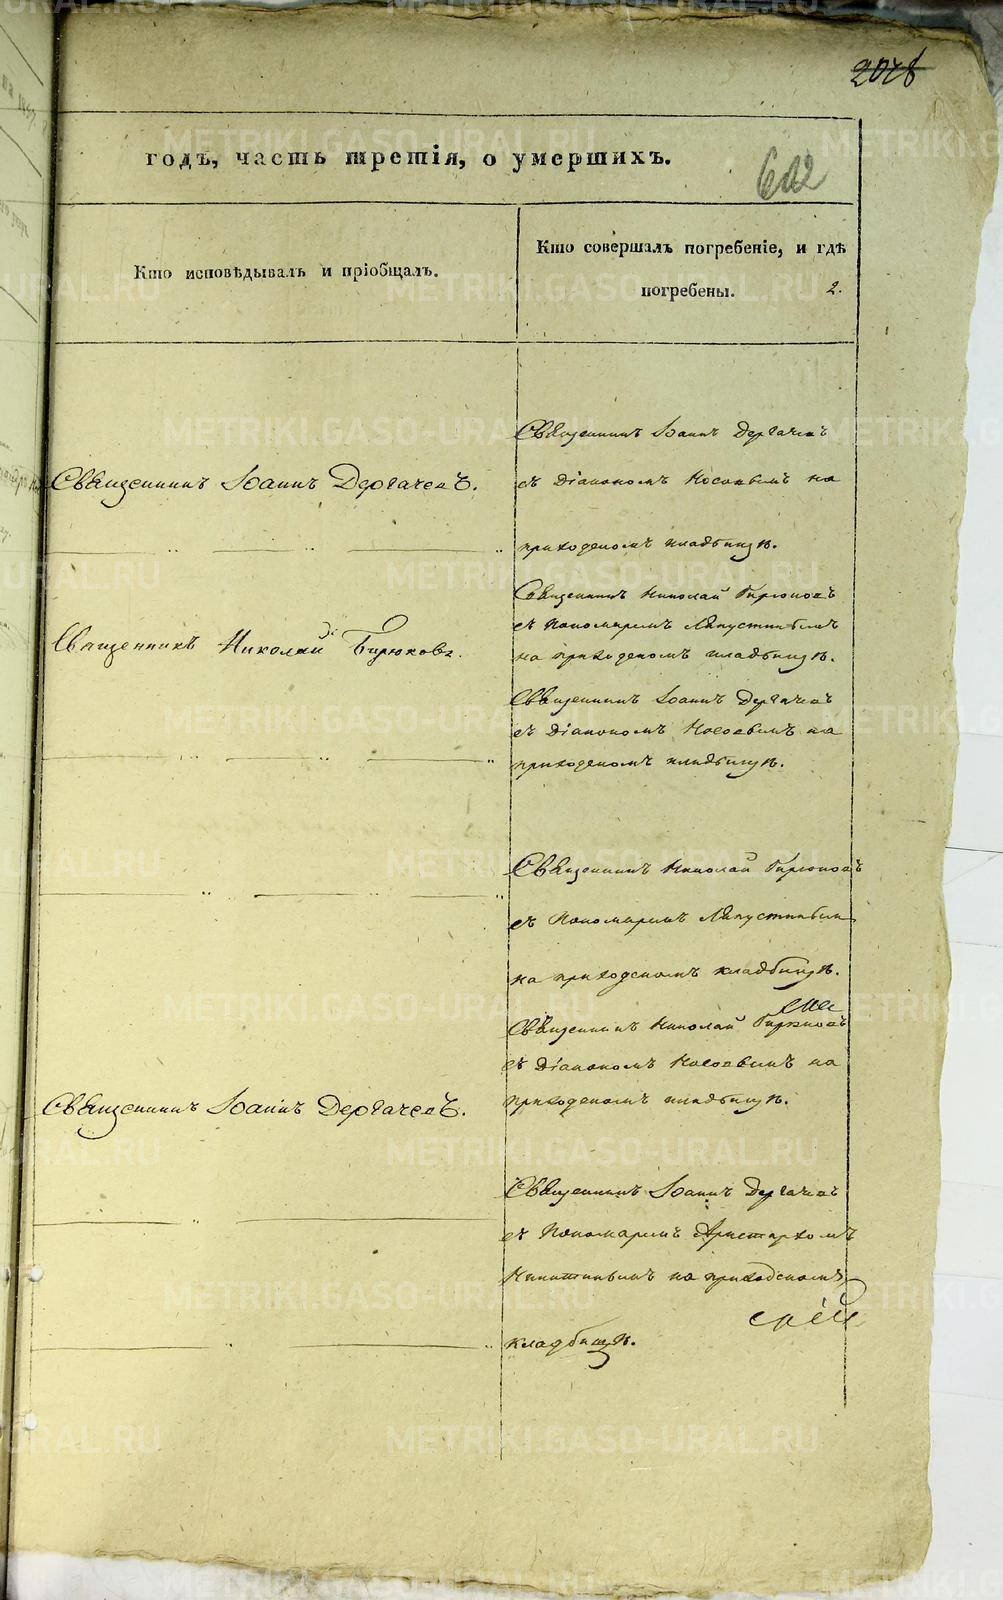 2028
602
годъ, часть третія, о умершихъ.
Кто исповѣдывалъ и пріобщалъ.
Кто совершалъ погребеніе, и гдѣ
погребены.
2.
Священникъ Іоаннъ Дергачевъ
Священникъ Іоаннъ Дергачевъ.
съ Діакономъ Носовымъ на
приходскомъ кладбищѣ.
Священникъ Николай Бирюковъ
съ Пономаремъ Ляпустинымъ
Священникъ Николай Бирюковъ.
на приходскомъ кладбищѣ.
Священникъ Іоаннъ Дергачевъ
съ Діакономъ Носовымъ на
приходскомъ кладбищѣ.
Священникъ Николай Бирюковъ
съ Пономаремъ Ляпустинымъ
на приходскомъ кладбищѣ.
Священникъ Николай Бирюковъ
съ Діакономъ Носовымъ на
приходскомъ кладбищѣ.
Священникъ Іоаннъ Дергачевъ.
Священникъ Іоаннъ Дергачевъ
съ Пономаремъ Аристархомъ
Никитинымъ на приходскомъ
кладбищѣ.
METRIKI.GASO-URAL.RU